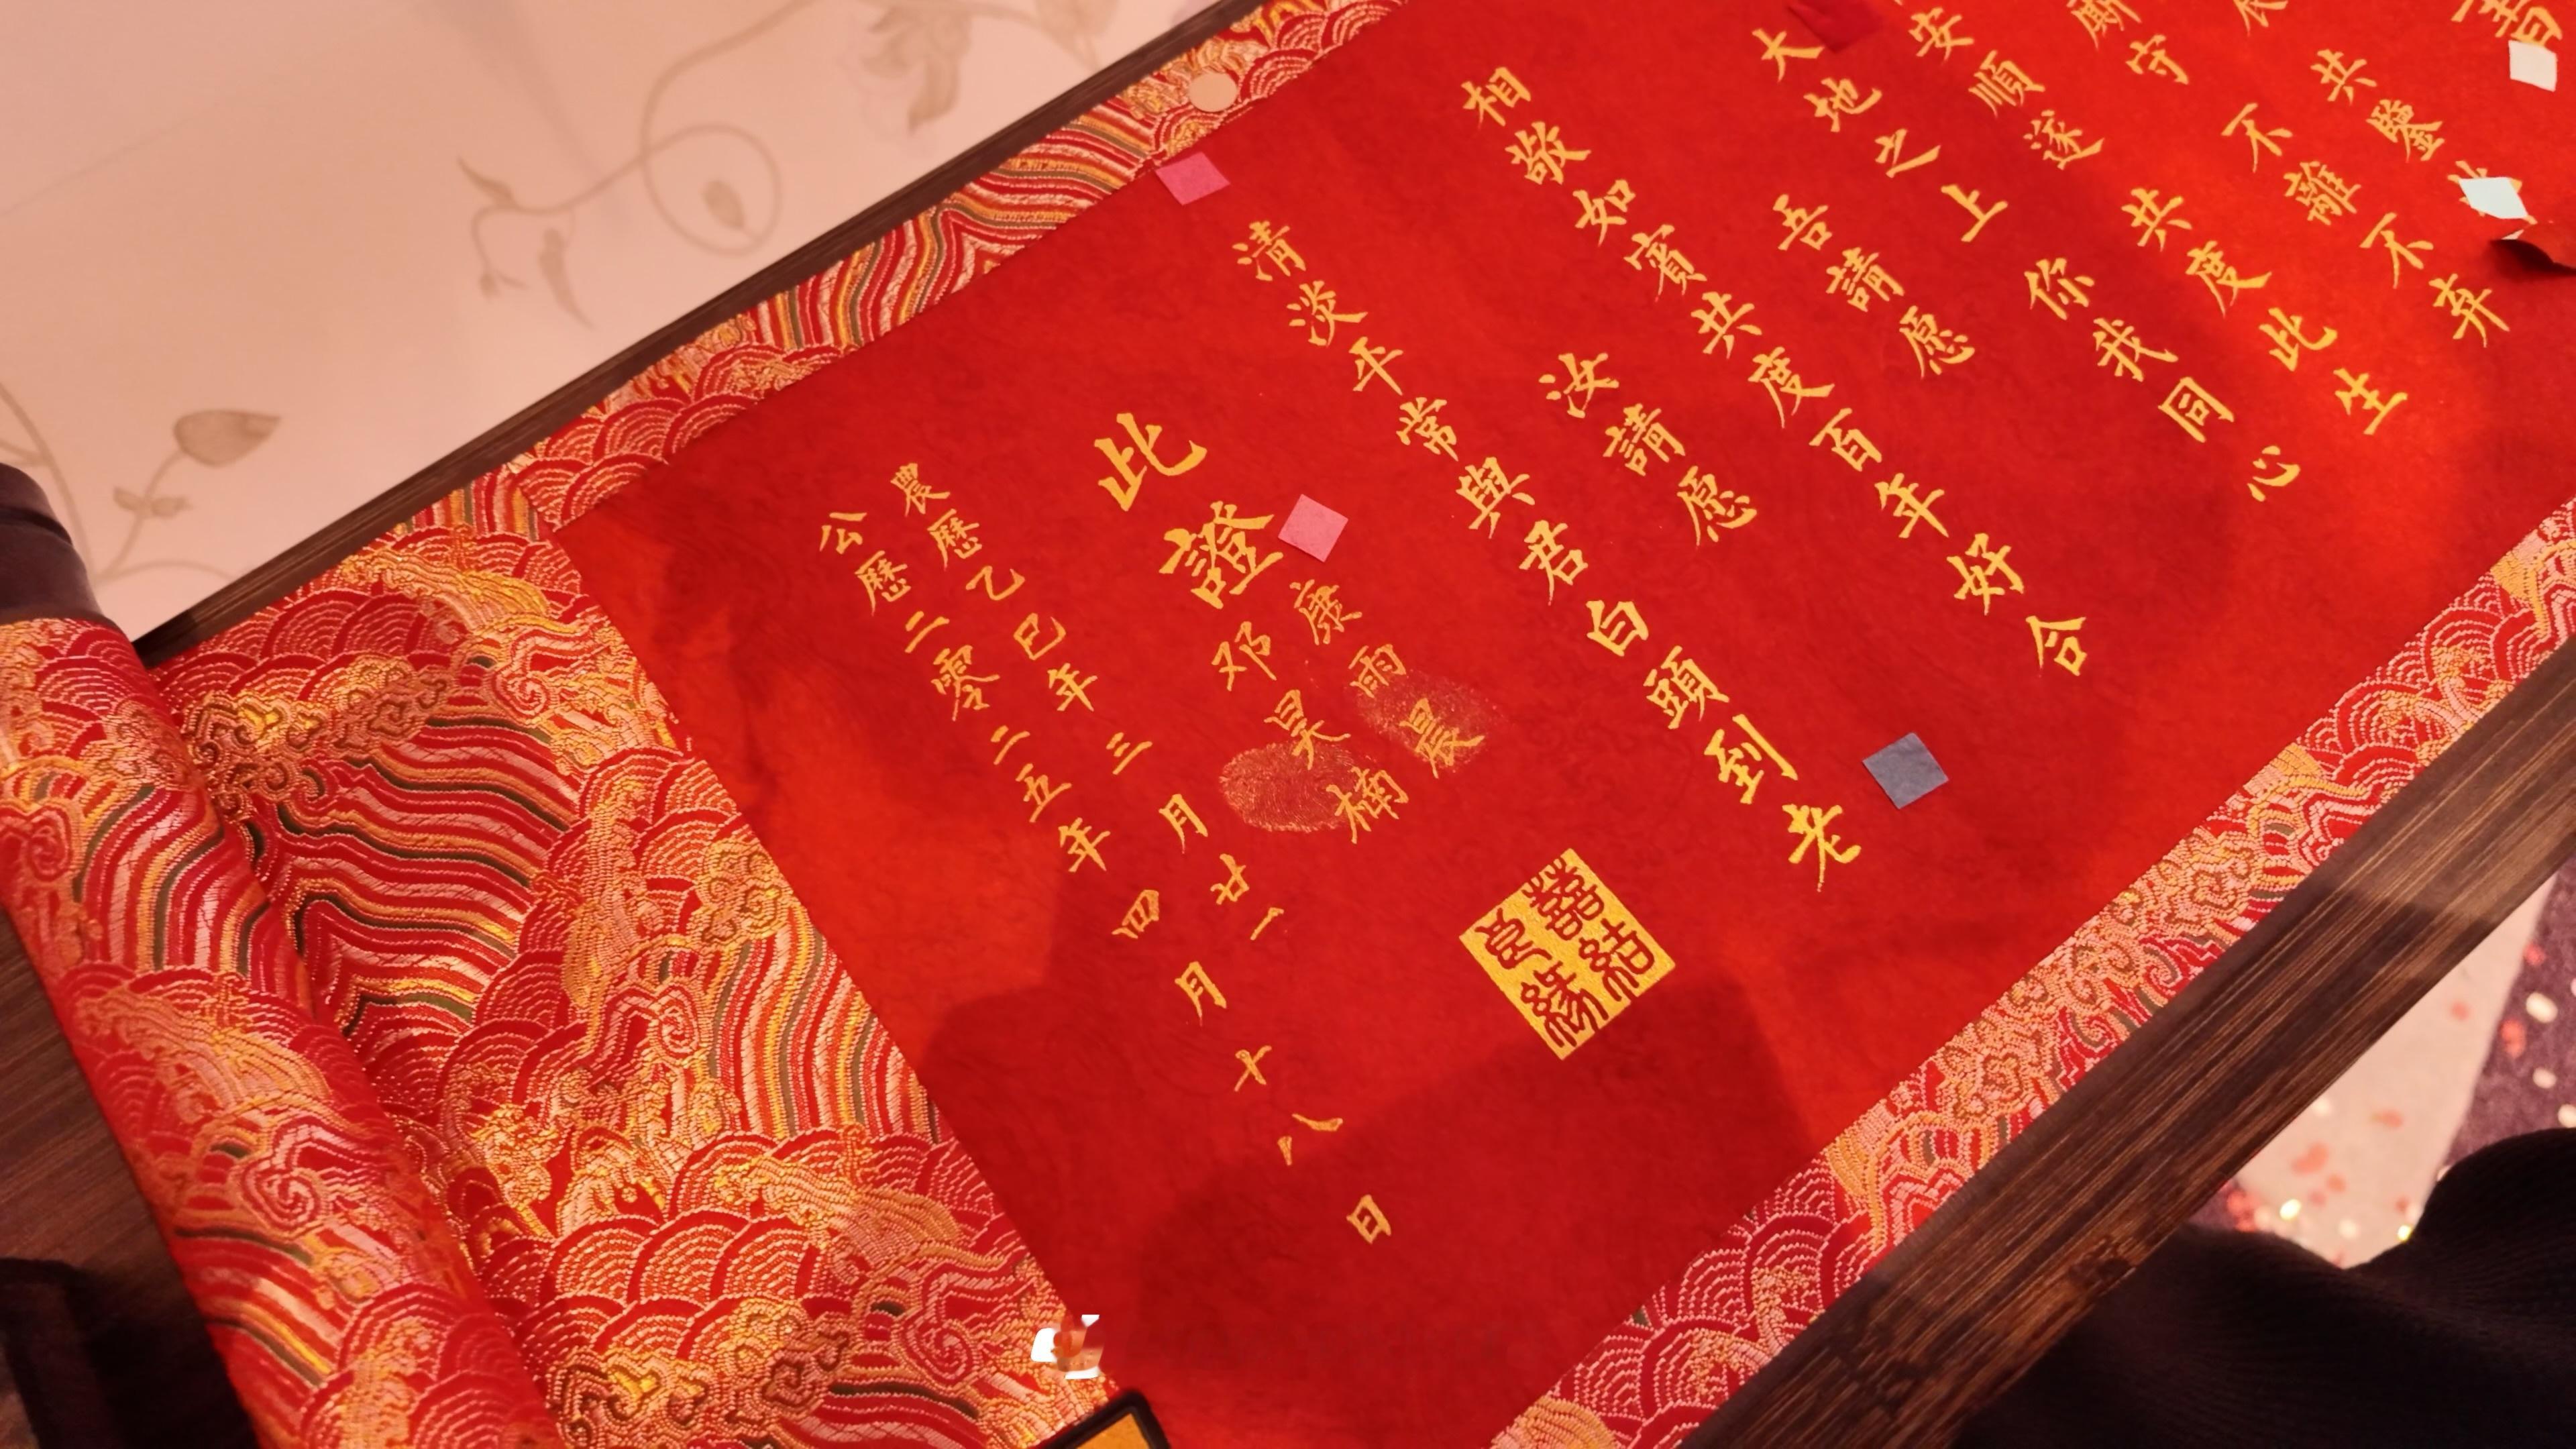 書
共鑒 不弃
不離
厮守 共度此生
安順遂 你我同心
大地之上 吾請愿
相敬如賓共度百年好合
汝請愿
清淡平常與君白頭到老
此證
康雨晨
邓昊楠
農歷乙巳年三月廿一
公歷二零二五年四月十八日
囍結
良緣